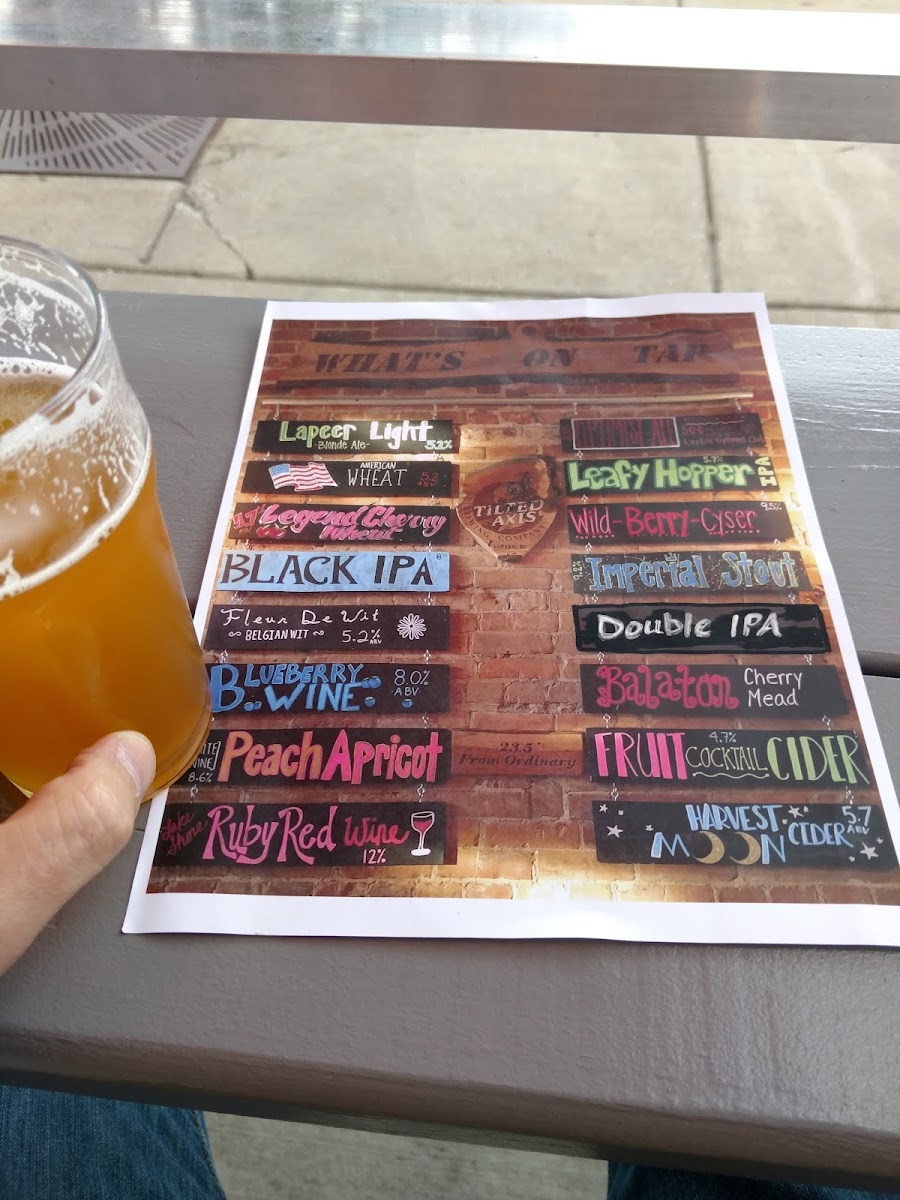 WHAT'S ON TAP
Lapeer Light
-Blonde Ale-
5.2%
AMERICAN
WHEAT
5.2
ABV
Legend Cherry
Wheat
BLACK IPA
Fleur De Wit
BELGIAN WIT
5.2%
ABV
BLUEBERRY
WINE
8.0%
ABV
WINE
8.6%
Peach Apricot
Lake
Shore
Ruby Red Wine
12%
TILTED
AXIS
BREWING COMPANY
LAPEER, MI
23.5°
From Ordinary
5.7%
Leafy Hopper
IPA
Wild-Berry-Cyser
9.5%
9.2%
Imperial Stout
Double IPA
Balaton
Cherry
Mead
FRUIT
4.7%
COCKTAIL
CIDER
HARVEST
MOON
CIDER
5.7
ABV